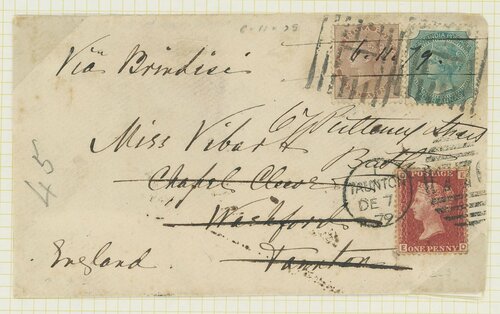 6.11.79
6.11.79.
INDIA POSTAGE
Via Brindisi
Miss Vibart
6 Pulteney
Bath
Chapel Cleeve
Washford
Taunton
England
45
TAUNTON
DE 7
79
POSTAGE
E D
ONE PENNY